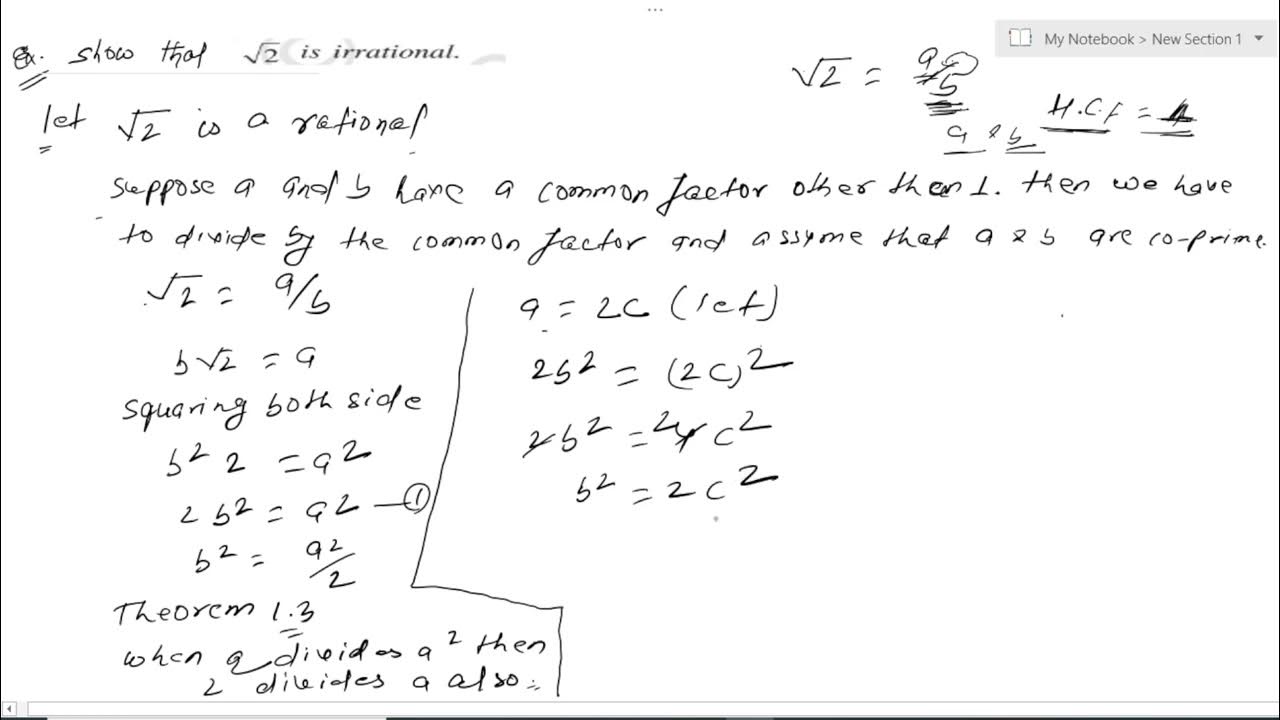 My Notebook > New Section 1
Ex. show that √2 is irrational.
√2 = a/b
H.C.F = 1
a & b
let √2 is a rational
suppose a and b have a common factor other then 1. then we have
to divide by the common factor and assyme that a & b are co-prime.
√2 = a/b
b√2 = a
squaring both side
b² 2 = a²
2b² = a² —①
b² = a²/2
Theorem 1.3
when 2 divides a² then
2 divides a also:
a = 2c (let)
2b² = (2c)²
2b² = 4c²
b² = 2c²